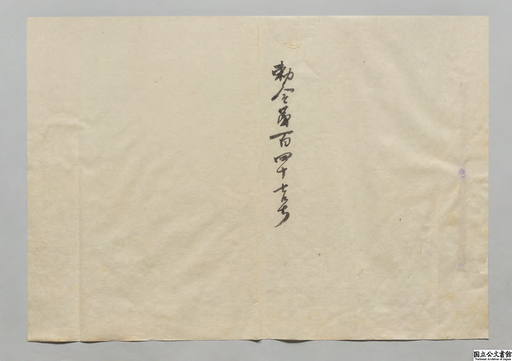 勅令第百四十七号
国立公文書館
National Archives of Japan